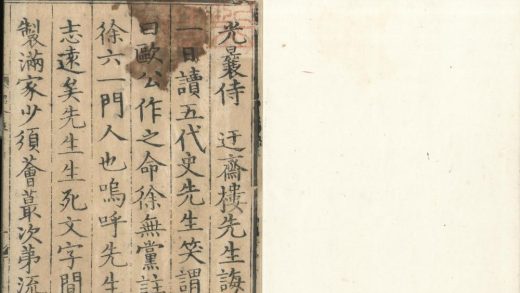 光曩侍　迂齋樓先生誨
一日讀五代史先生笑謂
曰歐公作之命徐無黨註
徐六一門人也嗚呼先生
志遠矣先生生死文字間
製滿家少須薈蕞次第流